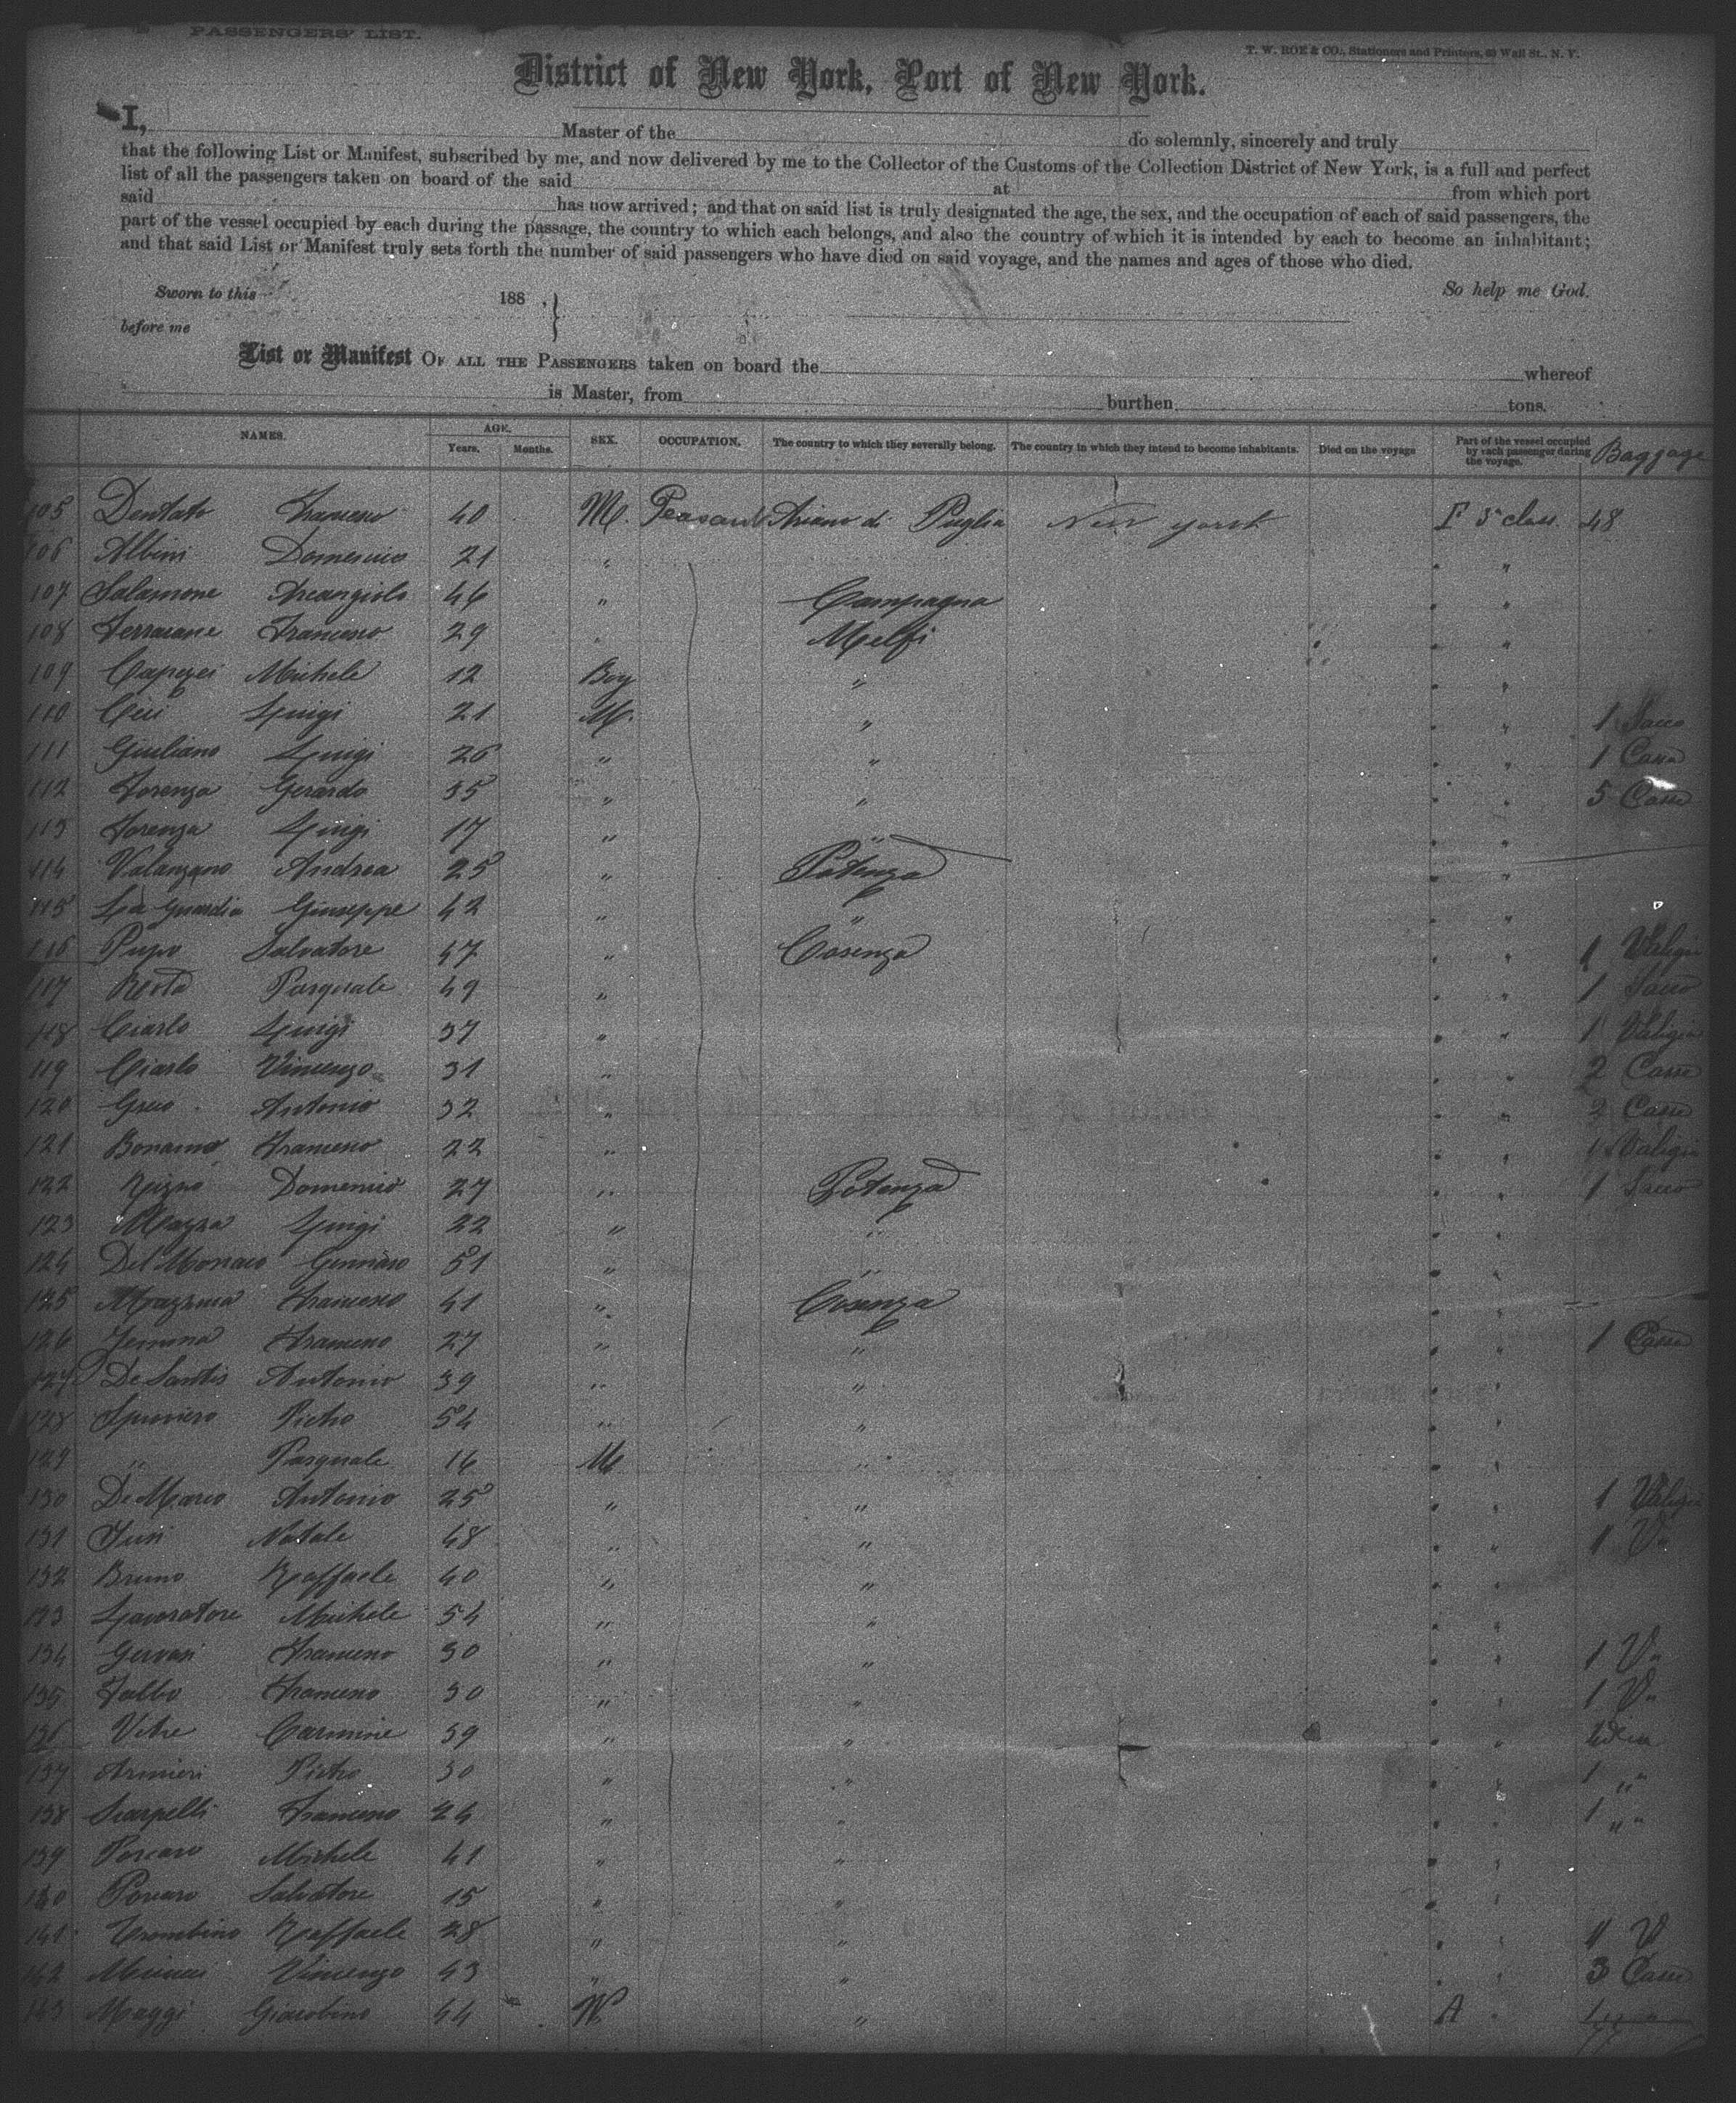 PASSENGERS' LIST.
T. W. ROE & CO., Stationers and Printers, 63 Wall St., N. Y.
District of New York, Port of New York.
I, Master of the do solemnly, sincerely and truly
that the following List or Manifest, subscribed by me, and now delivered by me to the Collector of the Customs of the Collection District of New York, is a full and perfect
list of all the passengers taken on board of the said at from which port
said has now arrived; and that on said list is truly designated the age, the sex, and the occupation of each of said passengers, the
part of the vessel occupied by each during the passage, the country to which each belongs, and also the country of which it is intended by each to become an inhabitant;
and that said List or Manifest truly sets forth the number of said passengers who have died on said voyage, and the names and ages of those who died.
Sworn to this 188 , So help me God.
before me
List or Manifest OF ALL THE PASSENGERS taken on board the whereof
is Master, from burthen tons.
NAMES. AGE. Years. Months. SEX. OCCUPATION. The country to which they severally belong. The country in which they intend to become inhabitants. Died on the voyage Part of the vessel occupied by each passenger during the voyage. Baggage
105 Dentato Francesco 40 M. Peasant Ariano di Puglia New York F 3 class 48
106 Albini Domenico 21 " " "
107 Salamone Arcangiolo 46 " Campagna " "
108 Ferraiane Francesco 29 " Melfi " "
109 Michele 12 Boy " " "
110 Luigi 21 M. " " " 1 Sacco
111 Giuliano Luigi 26 " " " " 1 Cassa
112 Forenza Gerardo 35 " " " " 5 Casse
113 Forenza Luigi 17 " " " "
114 Valanzano Andrea 25 " Potenza " "
115 La Guardia Giuseppe 42 " " " "
116 Pupo Salvatore 47 " Cosenza " " 1 Valigia
117 Resta Pasquale 49 " " " 1 Sacco
118 Ciarlo Luigi 37 " " " 1 Valigia
119 Ciarlo Vincenzo 31 " " " 2 Casse
120 Greco Antonio 32 " " " 2 Casse
121 Bonanno Francesco 22 " " " 1 Valigia
122 Domenico 27 " Potenza " " 1 Sacco
123 Mazza Luigi 22 " " " "
124 Del Monaco Gennaro 51 " " " "
125 Francesco 41 " Cosenza " "
126 Francesco 27 " " " " 1 Cassa
127 De Santis Antonio 39 " " " "
128 Spoviero Pietro 54 " " " "
129 " Pasquale 16 M " " "
130 De Marco Antonio 25 " " " " 1 Valigia
131 Natale 48 " " " " 1 V"
132 Bruno Raffaele 40 " " " "
133 Lavoratore Michele 54 " " " "
134 Gervasi Francesco 30 " " " " 1 V"
135 Talbo Francesco 30 " " " " 1 V"
136 Carmine 39 " " " "
137 Armieri Pietro 30 " " " " 1 "
138 Scarpelli Francesco 24 " " " " 1 "
139 Porcaro Michele 41 " " " "
140 Porcaro Salvatore 15 " " " "
141 Trombino Raffaele 28 " " " " V
142 Vincenzo 43 " " " " 3 Casse
143 Maggi Giacobino 44 W. " A " 1 "